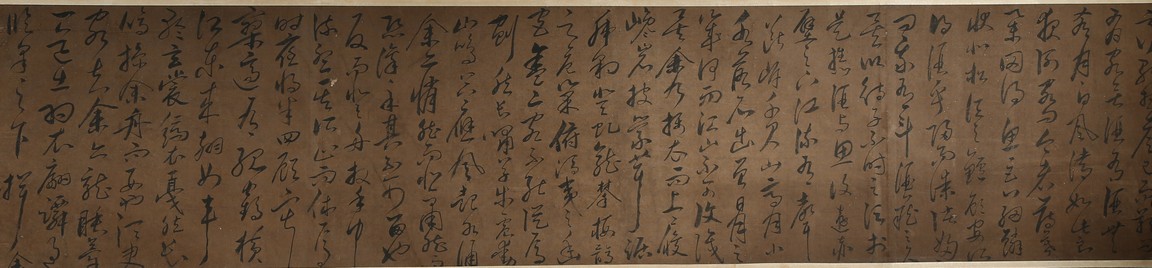 有客無酒有酒無
肴月白風清如此良
夜何客曰今者薄暮
舉網得魚巨口細鱗
狀如松江之鱸顧安所
得酒乎歸而謀諸婦
曰我有斗酒藏之久
矣以待子不時之須於
是攜酒與魚復遊赤
壁之下江流有聲
斷岸千尺山高月小
水落石出曾日月之
幾何而江山不可復識
矣余乃攝衣而上履
巉岩披蒙茸踞
虎豹登虬龍攀棲鶻
之危巢俯馮夷之幽
宮蓋二客不能從焉
劃然長嘯草木震動
山鳴谷應風起水涌
余亦悄然而悲肅然
恐凜乎其不可留也
反而登舟放乎中
流聽其所止而休焉
時夜將半四顧寂
寥適有孤鶴橫
江東來翅如車
輪玄裳縞衣戛然長
鳴掠余舟而西也須臾
客去余亦就睡夢
一道士羽衣蹁躚過
臨皋之下揖余